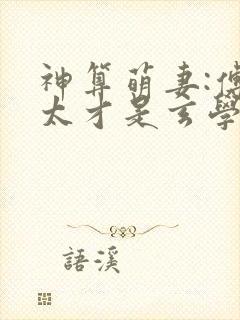 神算萌妻:傅
太才是玄學
語溪